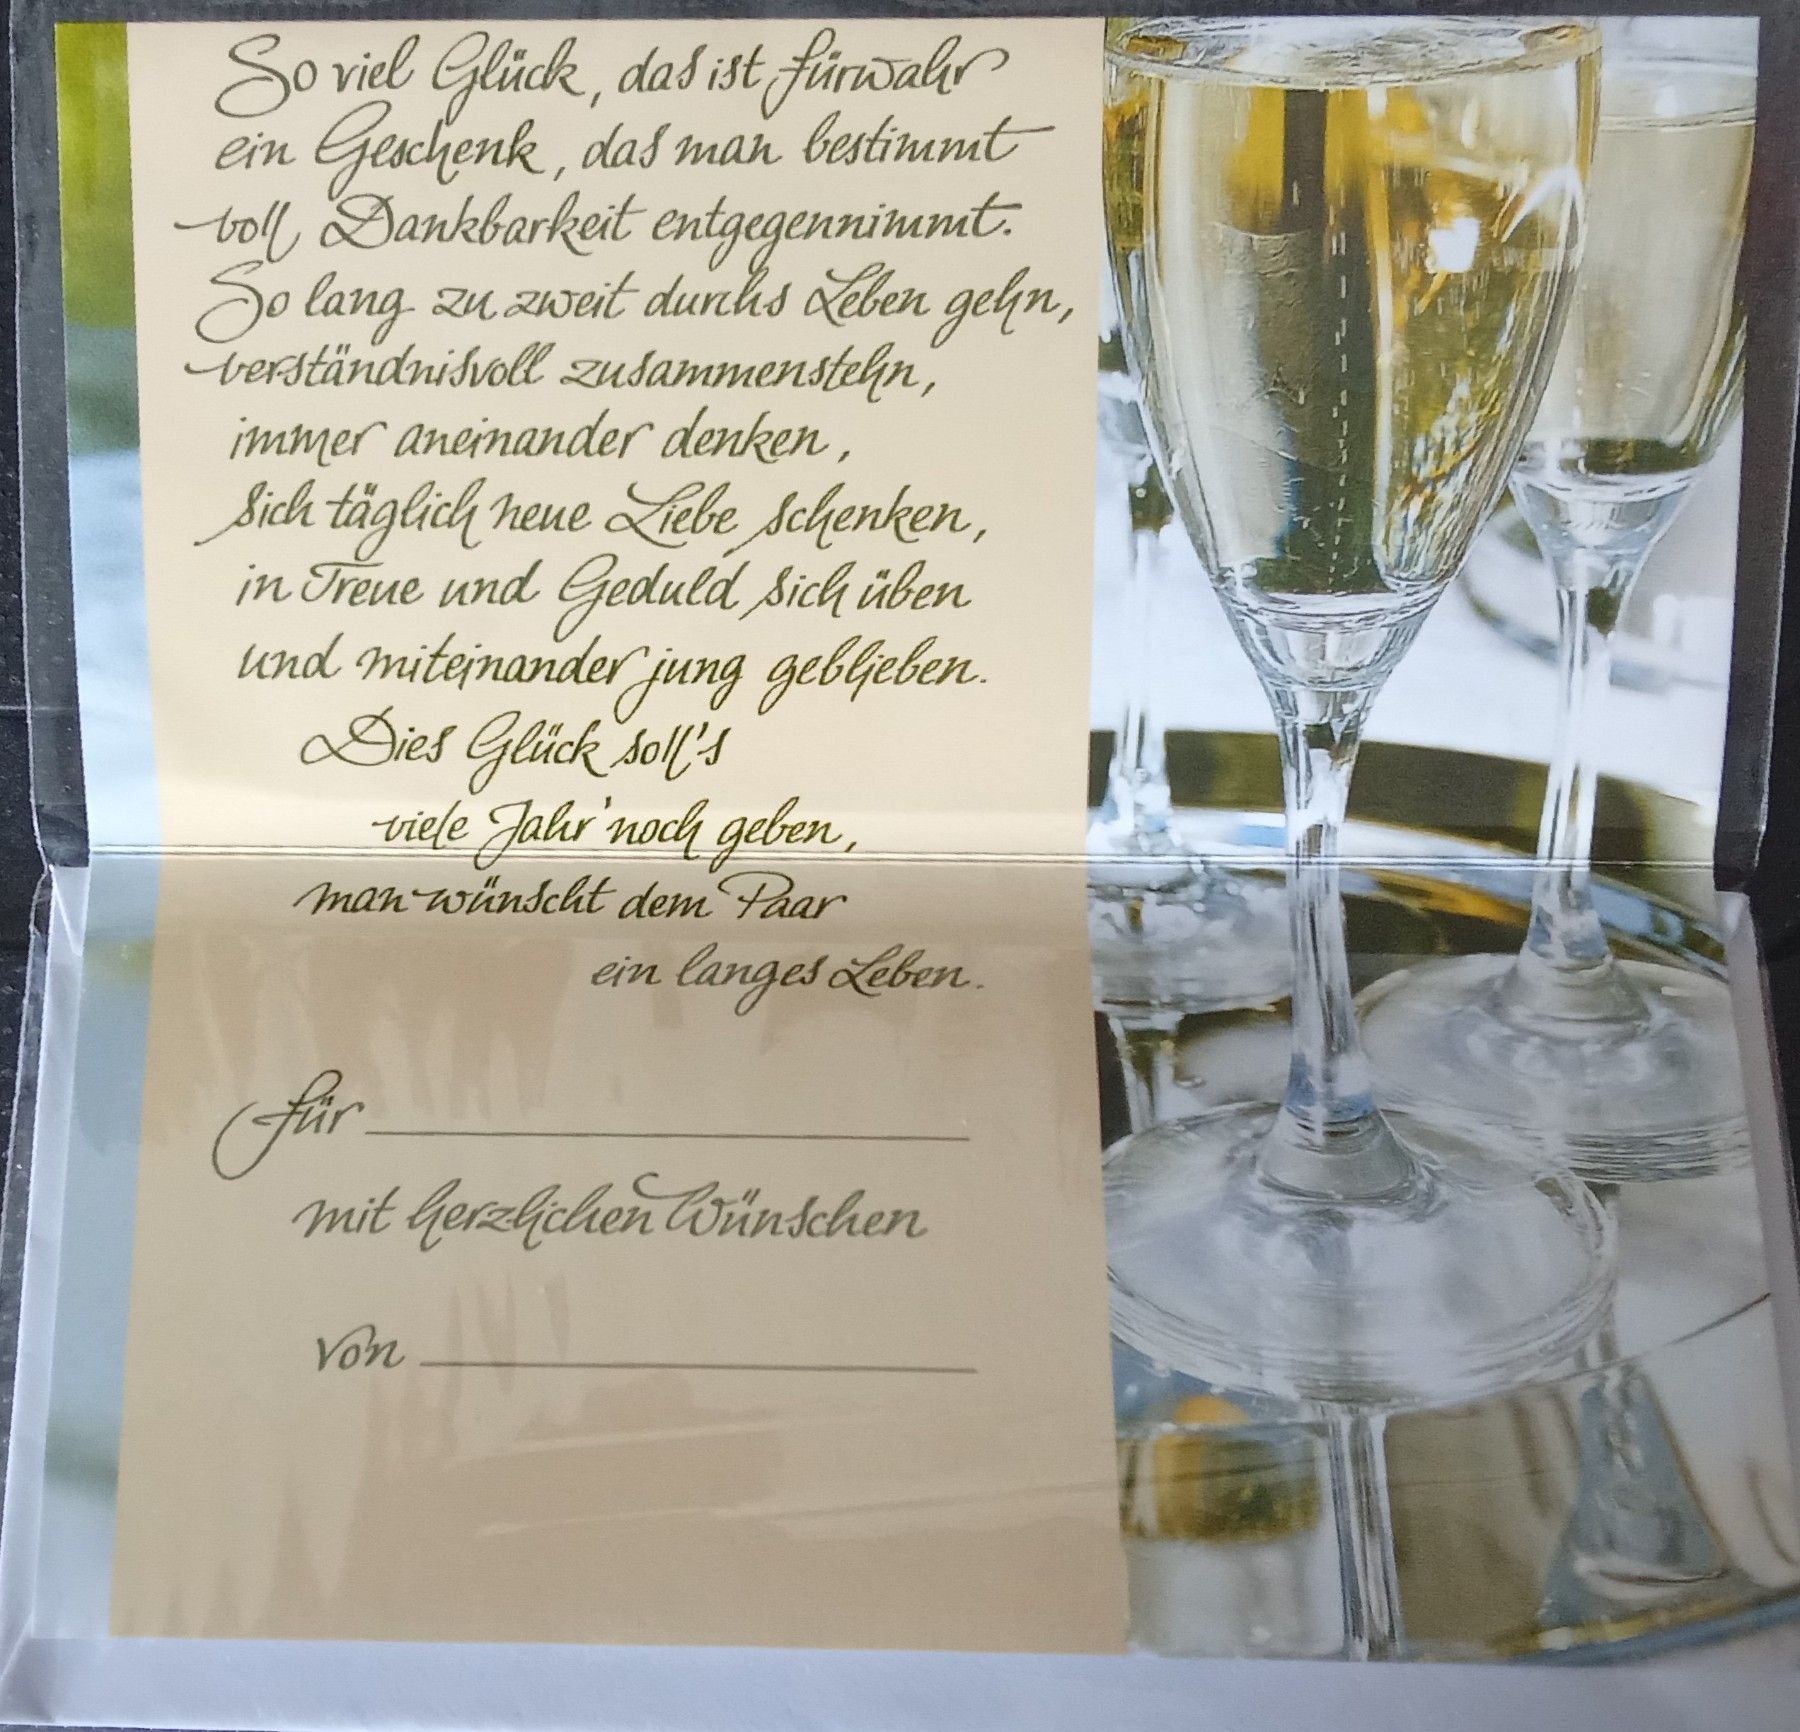 So viel Glück, das ist fürwahr
ein Geschenk, das man bestimmt
voll Dankbarkeit entgegennimmt.
So lang zu zweit durchs Leben gehn,
verständnisvoll zusammenstehn,
immer aneinander denken,
sich täglich neue Liebe schenken,
in Treue und Geduld sich üben
und miteinander jung geblieben.
Dies Glück soll's
viele Jahr' noch geben,
man wünscht dem Paar
ein langes Leben.
für
mit herzlichen Wünschen
von